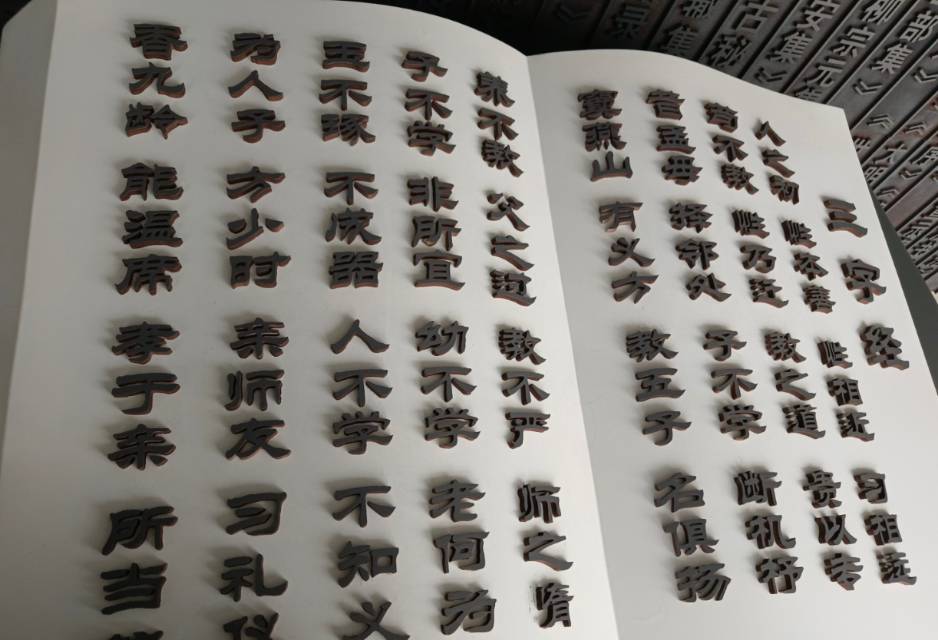 三字经
人之初 性本善 性相近 习相远
苟不教 性乃迁 教之道 贵以专
昔孟母 择邻处 子不学 断机杼
窦燕山 有义方 教五子 名俱扬
养不教 父之过 教不严 师之惰
子不学 非所宜 幼不学 老何为
玉不琢 不成器 人不学 不知义
为人子 方少时 亲师友 习礼仪
香九龄 能温席 孝于亲 所当